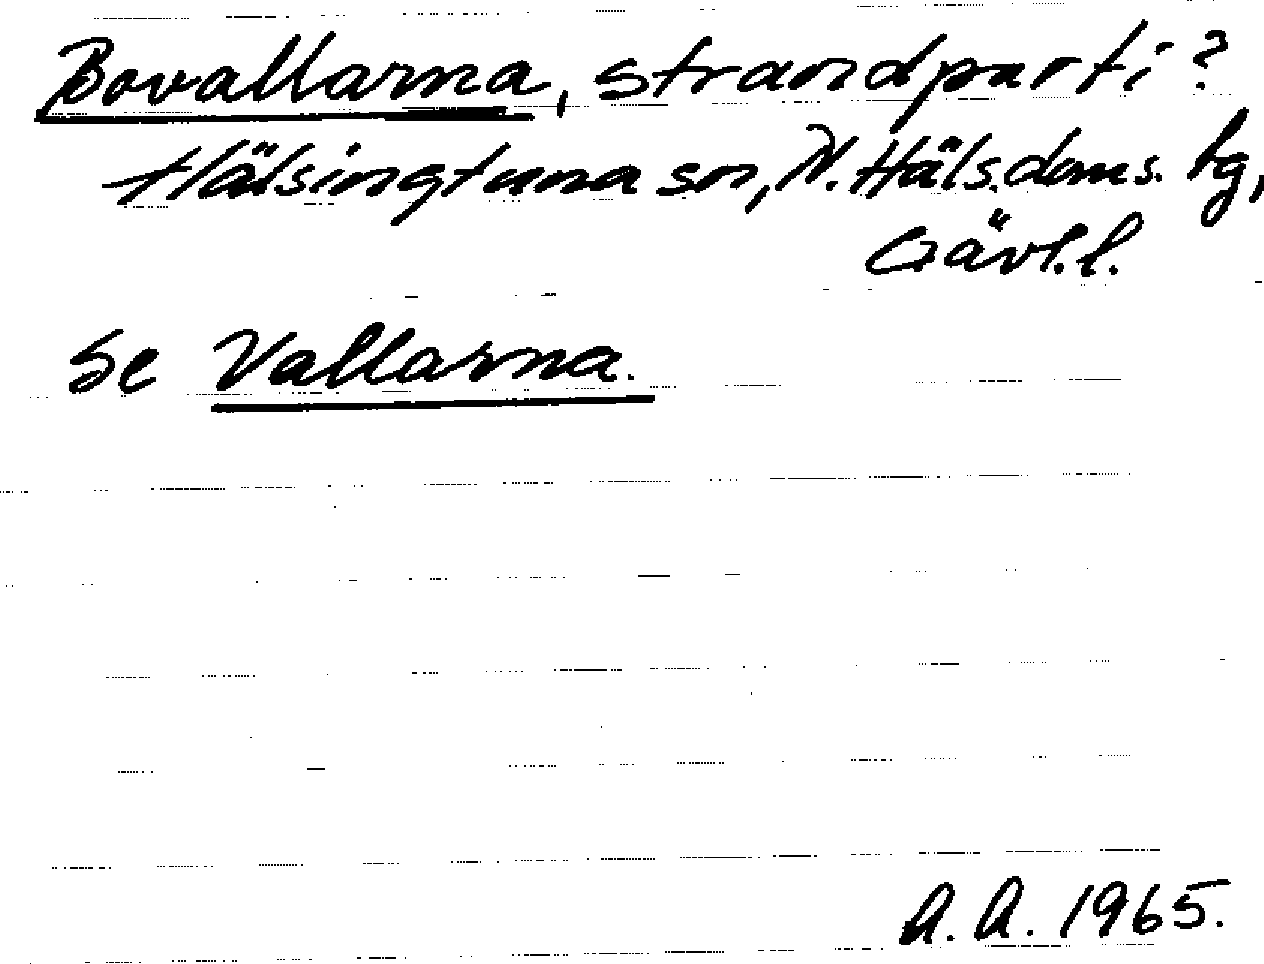 Bovallarna, strandparti?
Hälsingtuna sn, N. Häls. doms. tg,
Gävl.l.
Se Vallarna.
A. A. 1965.